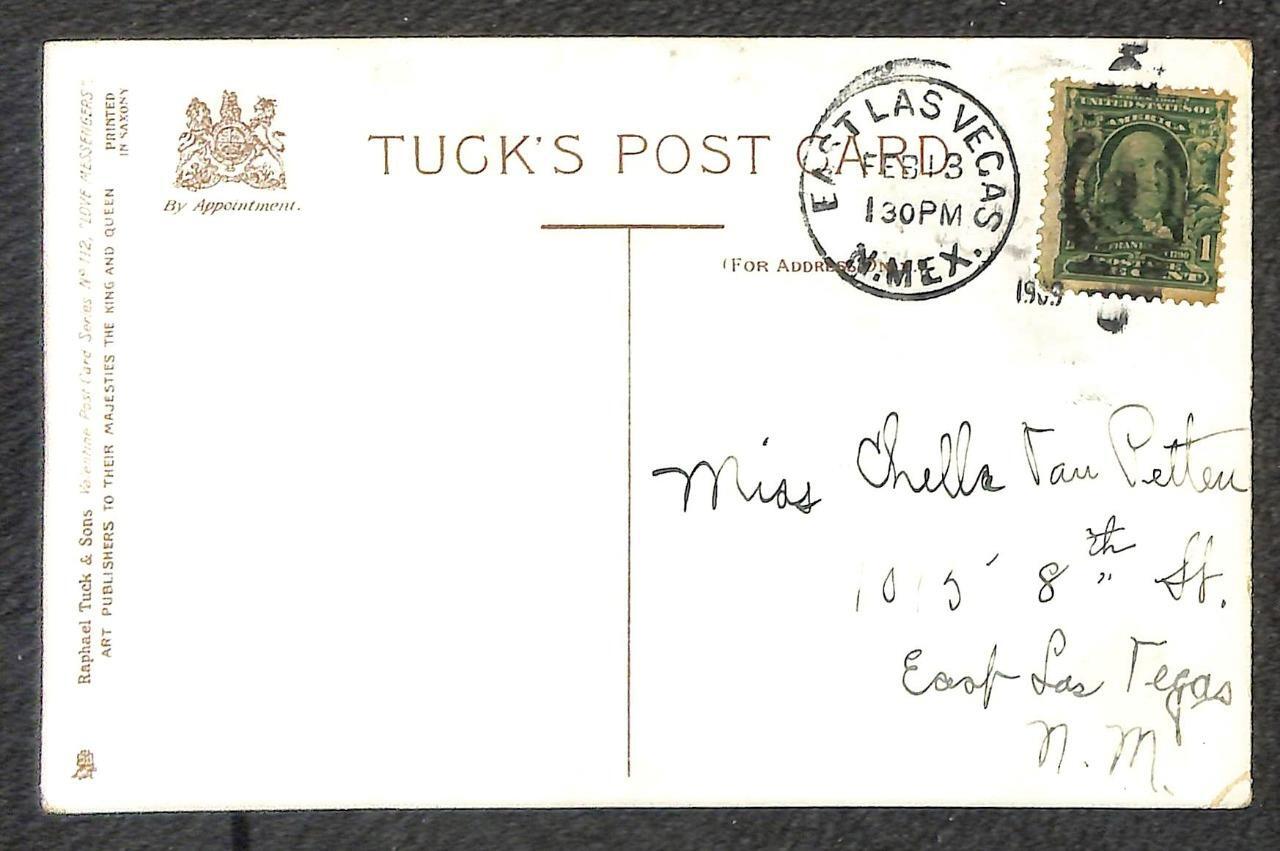 Raphael Tuck & Sons Valentine Post Card Series Nº 112, "LOVE MESSENGERS".
ART PUBLISHERS TO THEIR MAJESTIES THE KING AND QUEEN
PRINTED
IN SAXONY
By Appointment.
TUCK'S POST CARD
(FOR ADDRESS ON
EAST LAS VEGAS.
FEB 13
1 30PM
N. MEX.
1909
UNITED STATES OF
AMERICA
1
CENT
Miss Chella Van Petten
1015 8th St.
East Las Vegas
N. M.